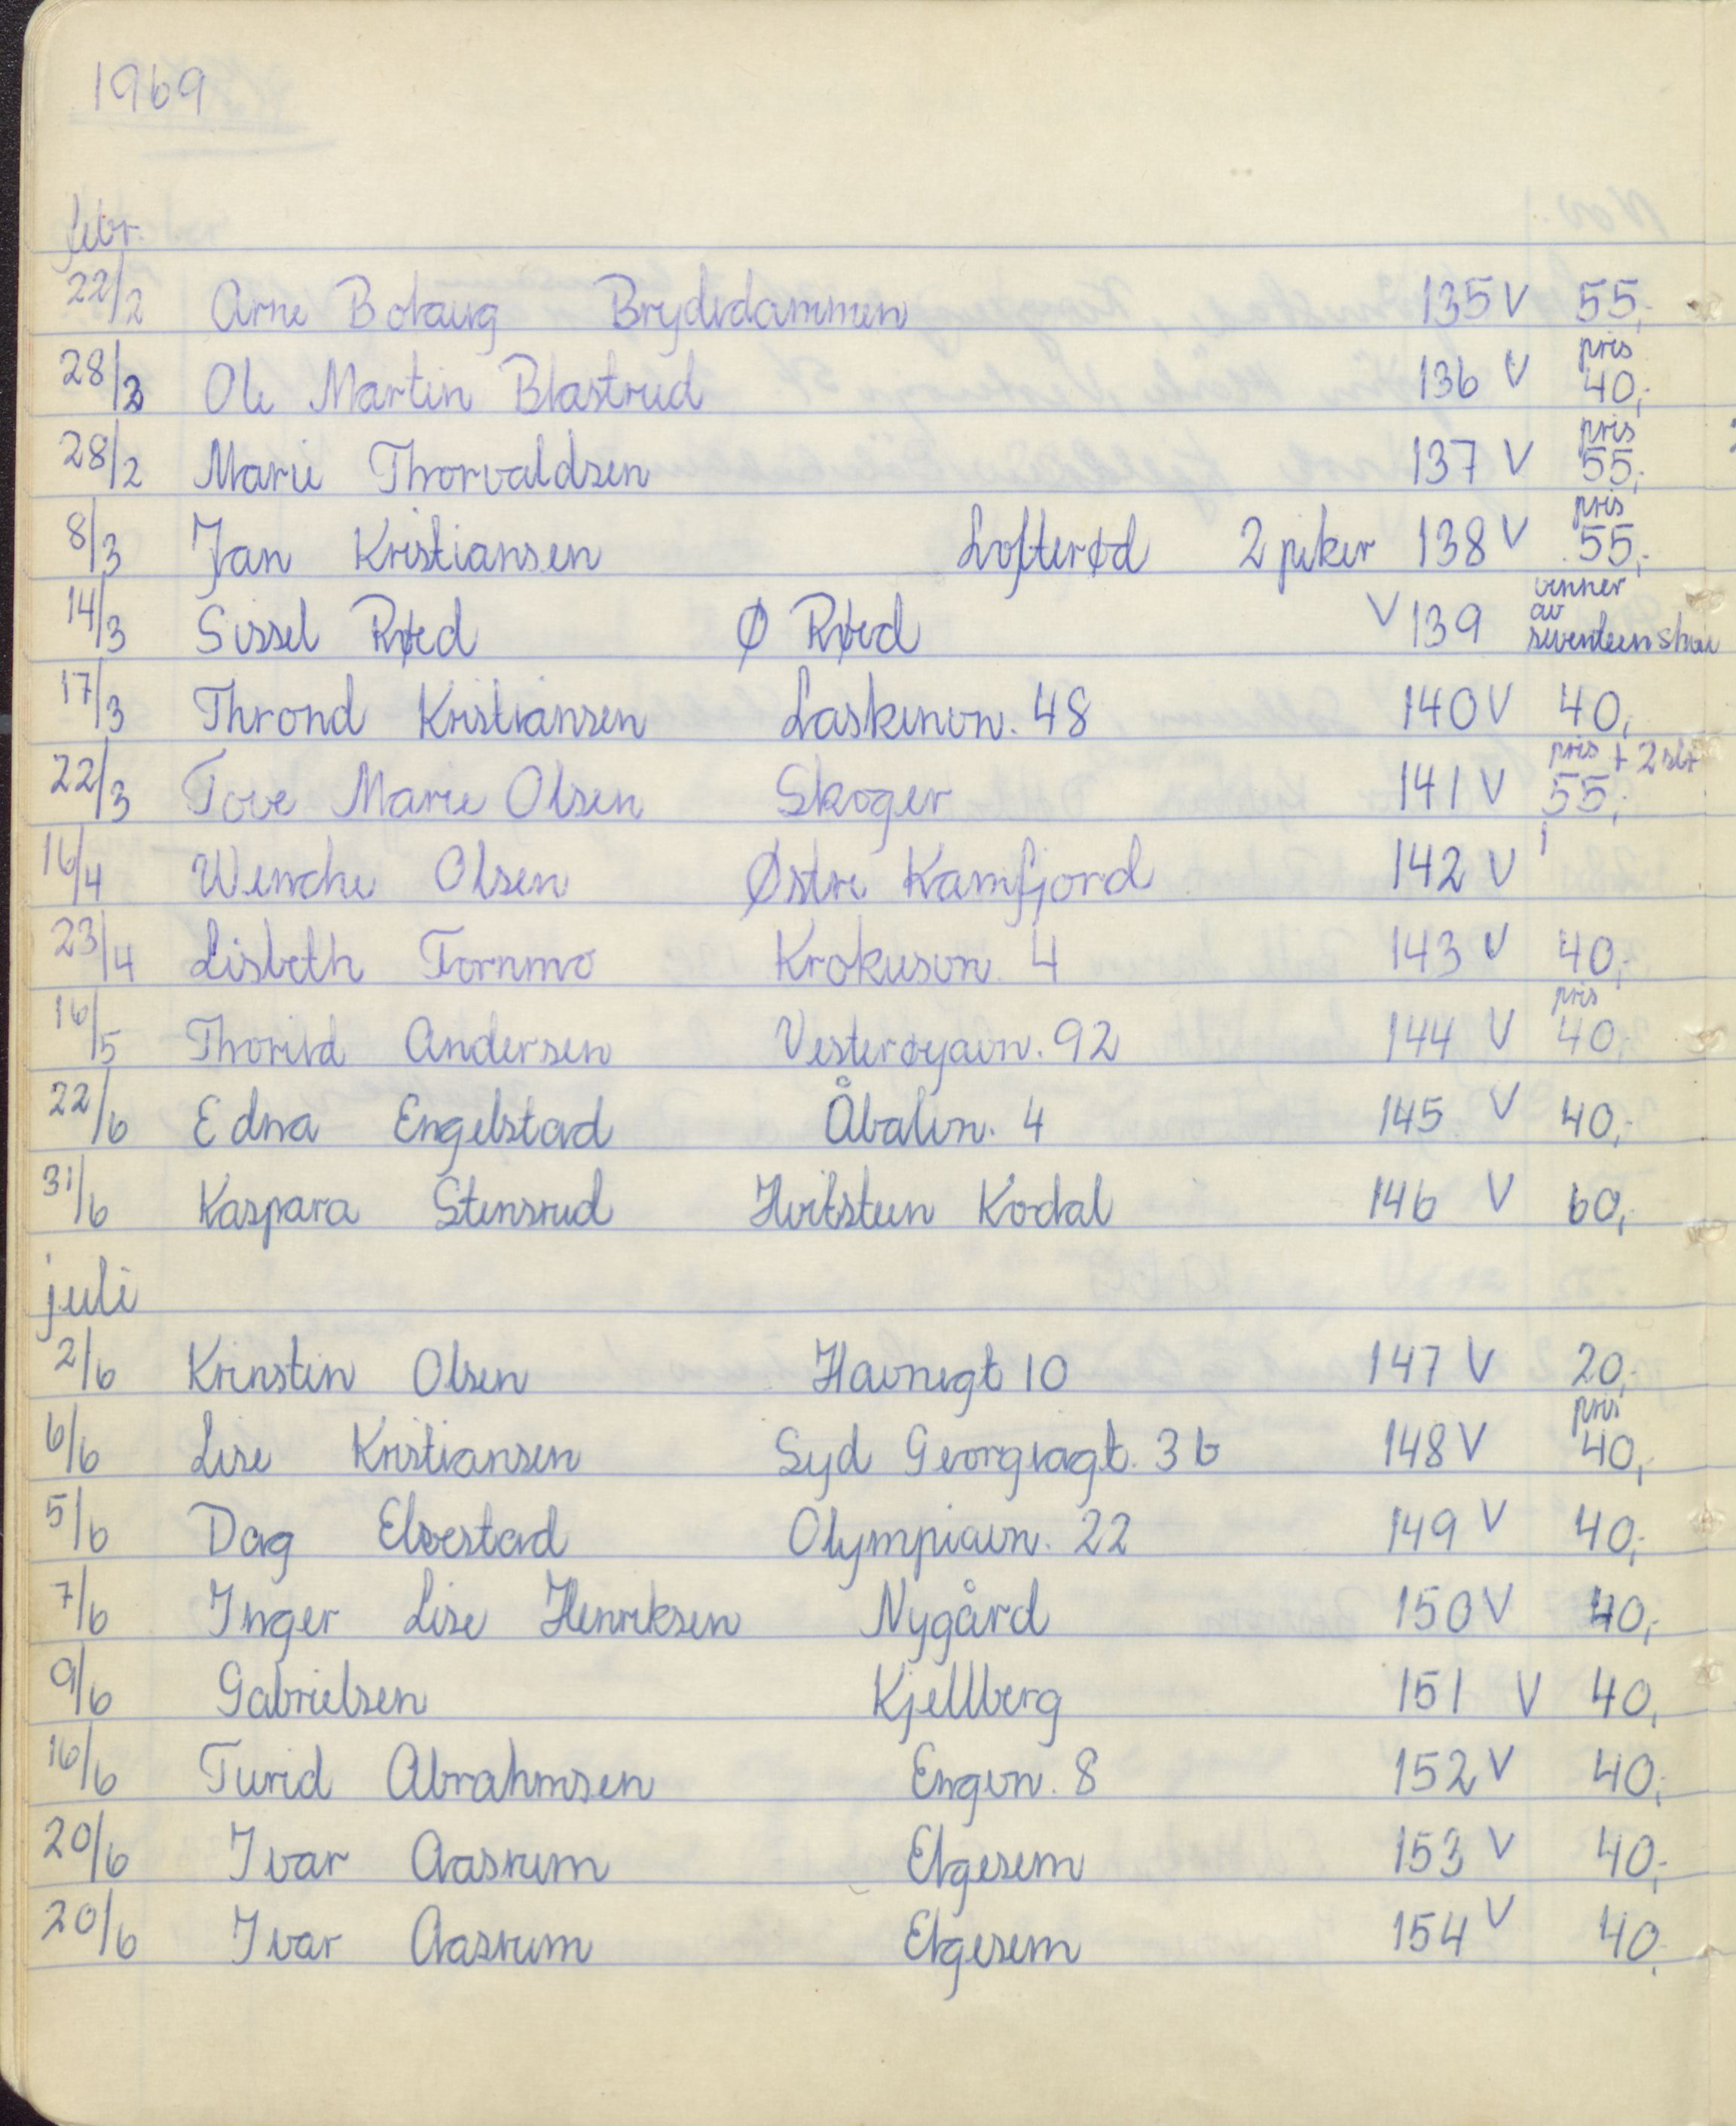 1969
febr.
22/2 Arne Bolaug Brydedammen 135 V 55,-
28/2 Ole Martin Blastrud 136 V pris 40,-
28/2 Marie Thorvaldsen 137 V pris 55,-
8/3 Jan Kristiansen Lofterød 2 piker 138 V pris 55,-
14/3 Sissel Røed Ø Røed V 139 venner av seventeen
17/3 Thrond Kristiansen Laskenvn. 48 140 V 40,
22/3 Tove Marie Olsen Skoger 141 V pris 55,- + 2
16/4 Wenche Olsen Østre Kamfjord 142 V
23/4 Lisbeth Tornmo Krokusvn. 4 143 V 40,-
16/5 Thorild Andersen Vesterøyavn. 92 144 V pris 40,-
22/6 Edna Engelstad Åbalvn. 4 145 V 40,-
31/6 Kaspara Stensrud Hvitsteen Kodal 146 V 60,-
juli
2/6 Krinstin Olsen Havnegt 10 147 V 20,-
6/6 Lise Kristiansen Syd Georgiagt. 3 b 148 V pris 40,-
5/6 Dag Elvestad Olympiavn. 22 149 V 40,-
7/6 Inger Lise Henriksen Nygård 150 V 40,-
9/6 Gabrielsen Kjellberg 151 V 40,
16/6 Turid Abrahmsen Engvn. 8 152 V 40,-
20/6 Ivar Aasrum Elgesem 153 V 40,-
20/6 Ivar Aasrum Elgesem 154 V 40,